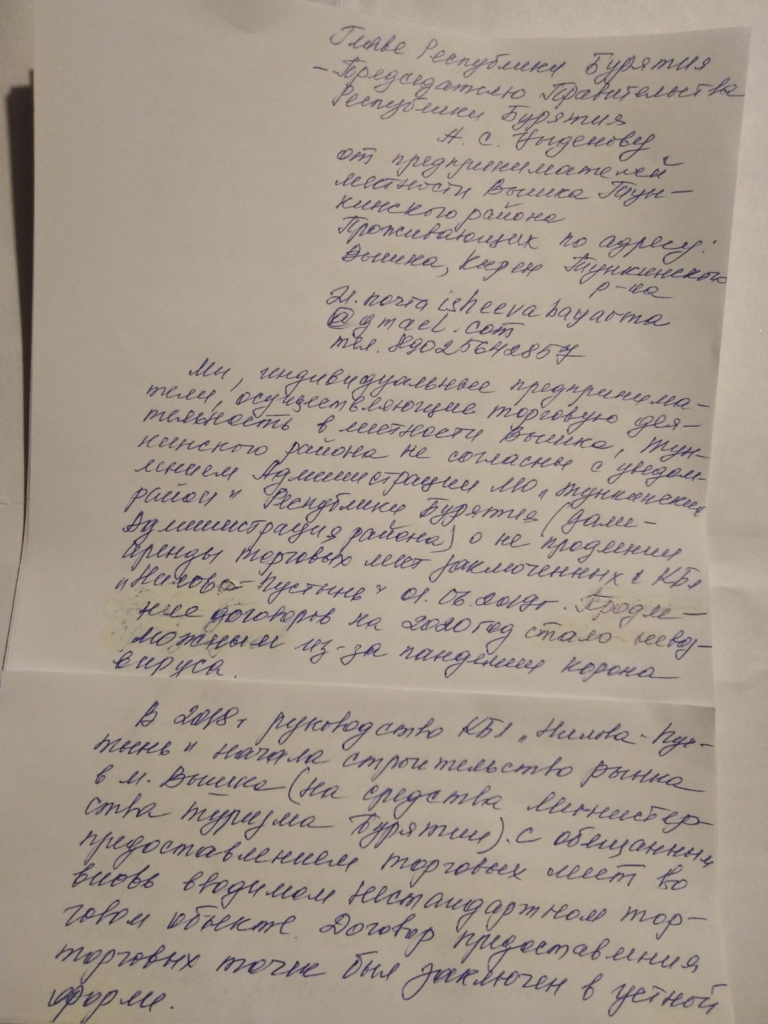 Главе Республики Бурятия
– Председателю Правительства
Республики Бурятия
А. С. Цыденову
от предпринимателей
местности Вышка Тун-
кинского района
Проживающих по адресу:
Вышка, Кырен Тункинского
р-на
Эл. почта isheeva bayarma
@gmael.com
тел. 89025642857
Мы, индивидуальные предпринима-
тели, осуществляющие торговую дея-
тельность в местности Вышка, Тун-
кинского района не согласны с уведом-
лением Администрации МО „Тункинский
район" Республики Бурятия (дали-
Администрация района) о не продлении
аренды торговых мест заключенных с КБЛ
„Нилова-Пустынь" 01.06.2019г. Продле-
ние договоров на 2020 год стало невоз-
можным из-за пандемии корона
вируса.
В 2018г руководство КБЛ „Нилова-Пус-
тынь" начала строительство рынка
в м. Вышка (на средства Министер-
ства туризма Бурятии). с обещанным
предоставлением торговых мест во
вновь вводимом нестандартном тор-
говом объекте. Договор предоставления
торговых точек был заключен в устной
форме.